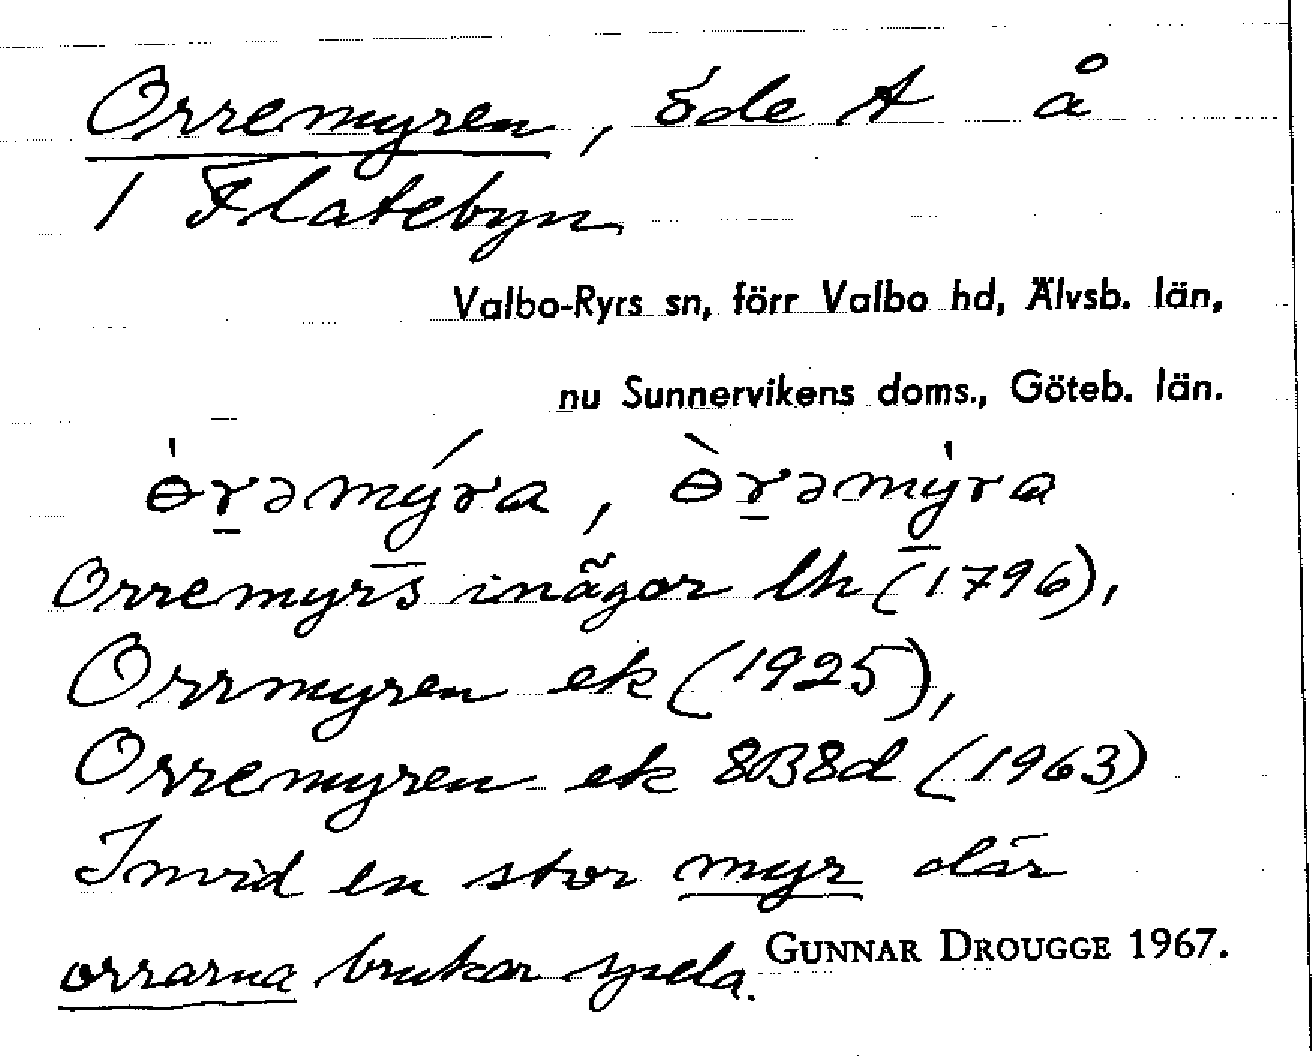 Orremyren, öde t å
1 Flatebyn
Valbo-Ryrs sn, förr Valbo hd, Älvsb. län,
nu Sunnervikens doms., Göteb. län.
ɵ̍r̠əmýra, ɵ̀r̠əmy̍ra
Orremyrs inägor lh (1796),
Orrmyren ek (1925),
Orremyren ek 8B8d (1963)
Invid en stor myr där
orrarna brukar spela.
GUNNAR DROUGGE 1967.